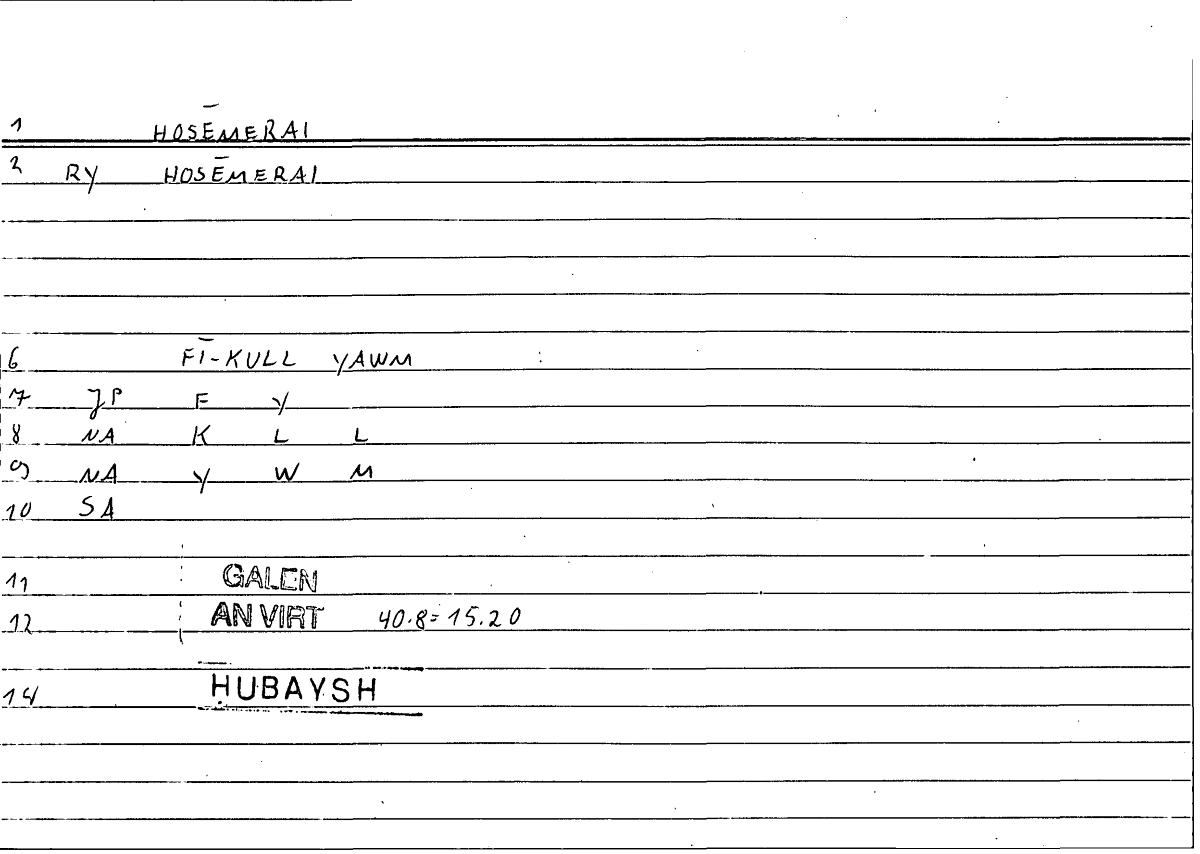 1 HOSĒMERAI
2 RY HOSĒMERAI
6 FĪ-KULL YAWM
7 JP F Y
8 NA K L L
9 NA Y W M
10 SA
11 GALEN
12 AN VIRT 40.8=15.20
14 ḤUBAYSH